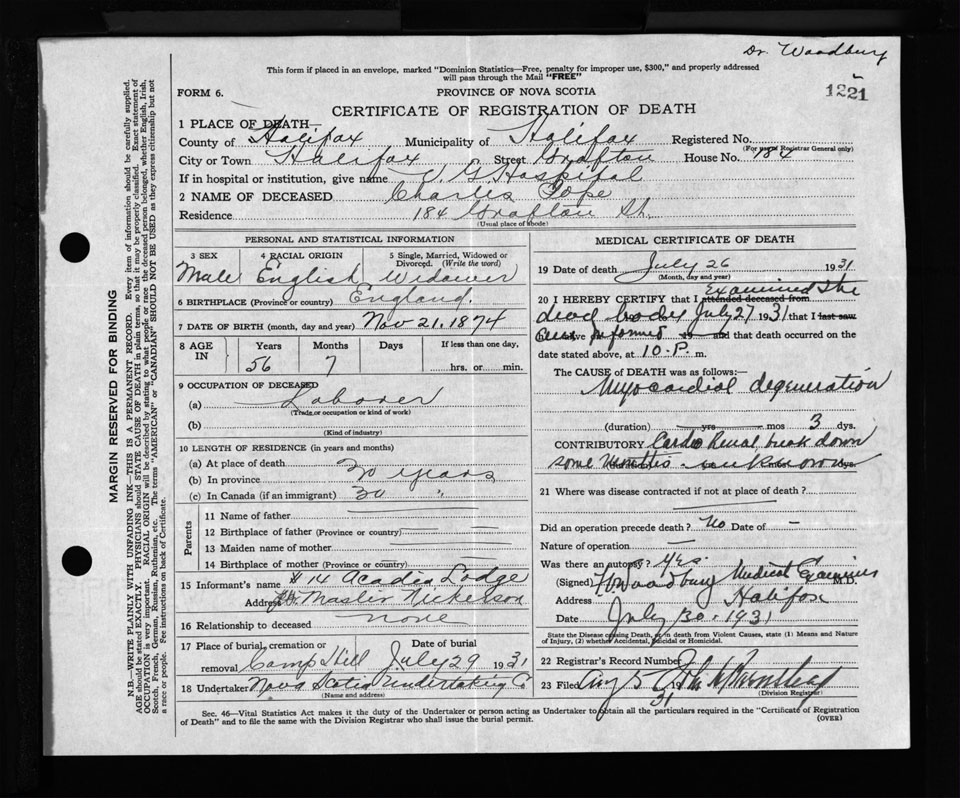 Dr. Woodbury
This form if placed in an envelope, marked "Dominion Statistics—Free, penalty for improper use, $300," and properly addressed
will pass through the Mail "FREE"
1221
FORM 6.
PROVINCE OF NOVA SCOTIA
CERTIFICATE OF REGISTRATION OF DEATH
1 PLACE OF DEATH—
County of Halifax Municipality of Halifax Registered No.
(For use of Registrar General only)
City or Town Halifax Street Grafton House No. 184
If in hospital or institution, give name V. G Hospital
2 NAME OF DECEASED Charles Pope
Residence 184 Grafton St.
(Usual place of abode)
PERSONAL AND STATISTICAL INFORMATION
3 SEX 4 RACIAL ORIGIN 5 Single, Married, Widowed or Divorced. (Write the word)
Male English Widower
6 BIRTHPLACE (Province or country) England.
7 DATE OF BIRTH (month, day and year) Nov 21. 1874
8 AGE IN Years Months Days If less than one day,
56 7 hrs. or min.
9 OCCUPATION OF DECEASED
(a) Laborer
(Trade or occupation or kind of work)
(b)
(Kind of industry)
10 LENGTH OF RESIDENCE (in years and months)
(a) At place of death
(b) In province 30 years
(c) In Canada (if an immigrant) 30 "
Parents
11 Name of father
12 Birthplace of father (Province or country)
13 Maiden name of mother
14 Birthplace of mother (Province or country)
15 Informant's name #14 Acadia Lodge
Address Master Nickerson
16 Relationship to deceased none
17 Place of burial, cremation or removal Date of burial
Camp Hill July 29 1931
18 Undertaker Nova Scotia Undertaking Co
(Name and address)
MEDICAL CERTIFICATE OF DEATH
19 Date of death July 26 1931
(Month, day and year)
20 I HEREBY CERTIFY that I attended deceased from Examined the
dead body July 27 1931 that I last saw
have informed and that death occurred on the
date stated above, at 10. P. m.
The CAUSE of DEATH was as follows:
Myocardial degeneration
(duration) yrs mos 3 dys.
CONTRIBUTORY Cardio Renal break down
some months - unknown
21 Where was disease contracted if not at place of death?
Did an operation precede death? No Date of —
Nature of operation —
Was there an autopsy? Yes.
(Signed) Woodbury Medical Examiner
Address Halifax
Date July 30. 1931
State the Disease causing Death, or, in death from Violent Causes, state (1) Means and Nature
of Injury, (2) whether Accidental, Suicidal or Homicidal.
22 Registrar's Record Number
23 Filed Aug 5 19 31
(Division Registrar)
Sec. 46—Vital Statistics Act makes it the duty of the Undertaker or person acting as Undertaker to obtain all the particulars required in the "Certificate of Registration
of Death" and to file the same with the Division Registrar who shall issue the burial permit.
(OVER)
MARGIN RESERVED FOR BINDING
N.B.—WRITE PLAINLY WITH UNFADING INK—THIS IS A PERMANENT RECORD. Every item of information should be carefully supplied.
AGE should be stated EXACTLY. PHYSICIANS should STATE CAUSE OF DEATH in plain terms, so that it may be properly classified. Exact statement of
OCCUPATION is very important. RACIAL ORIGIN will be described by stating to what people or race the deceased person belonged, whether English, Irish,
Scotch, French, German, Russian, Ruthenian, etc. The terms "AMERICAN" or "CANADIAN" SHOULD NOT BE USED as they express citizenship but not
a race or people. See instructions on back of Certificate.